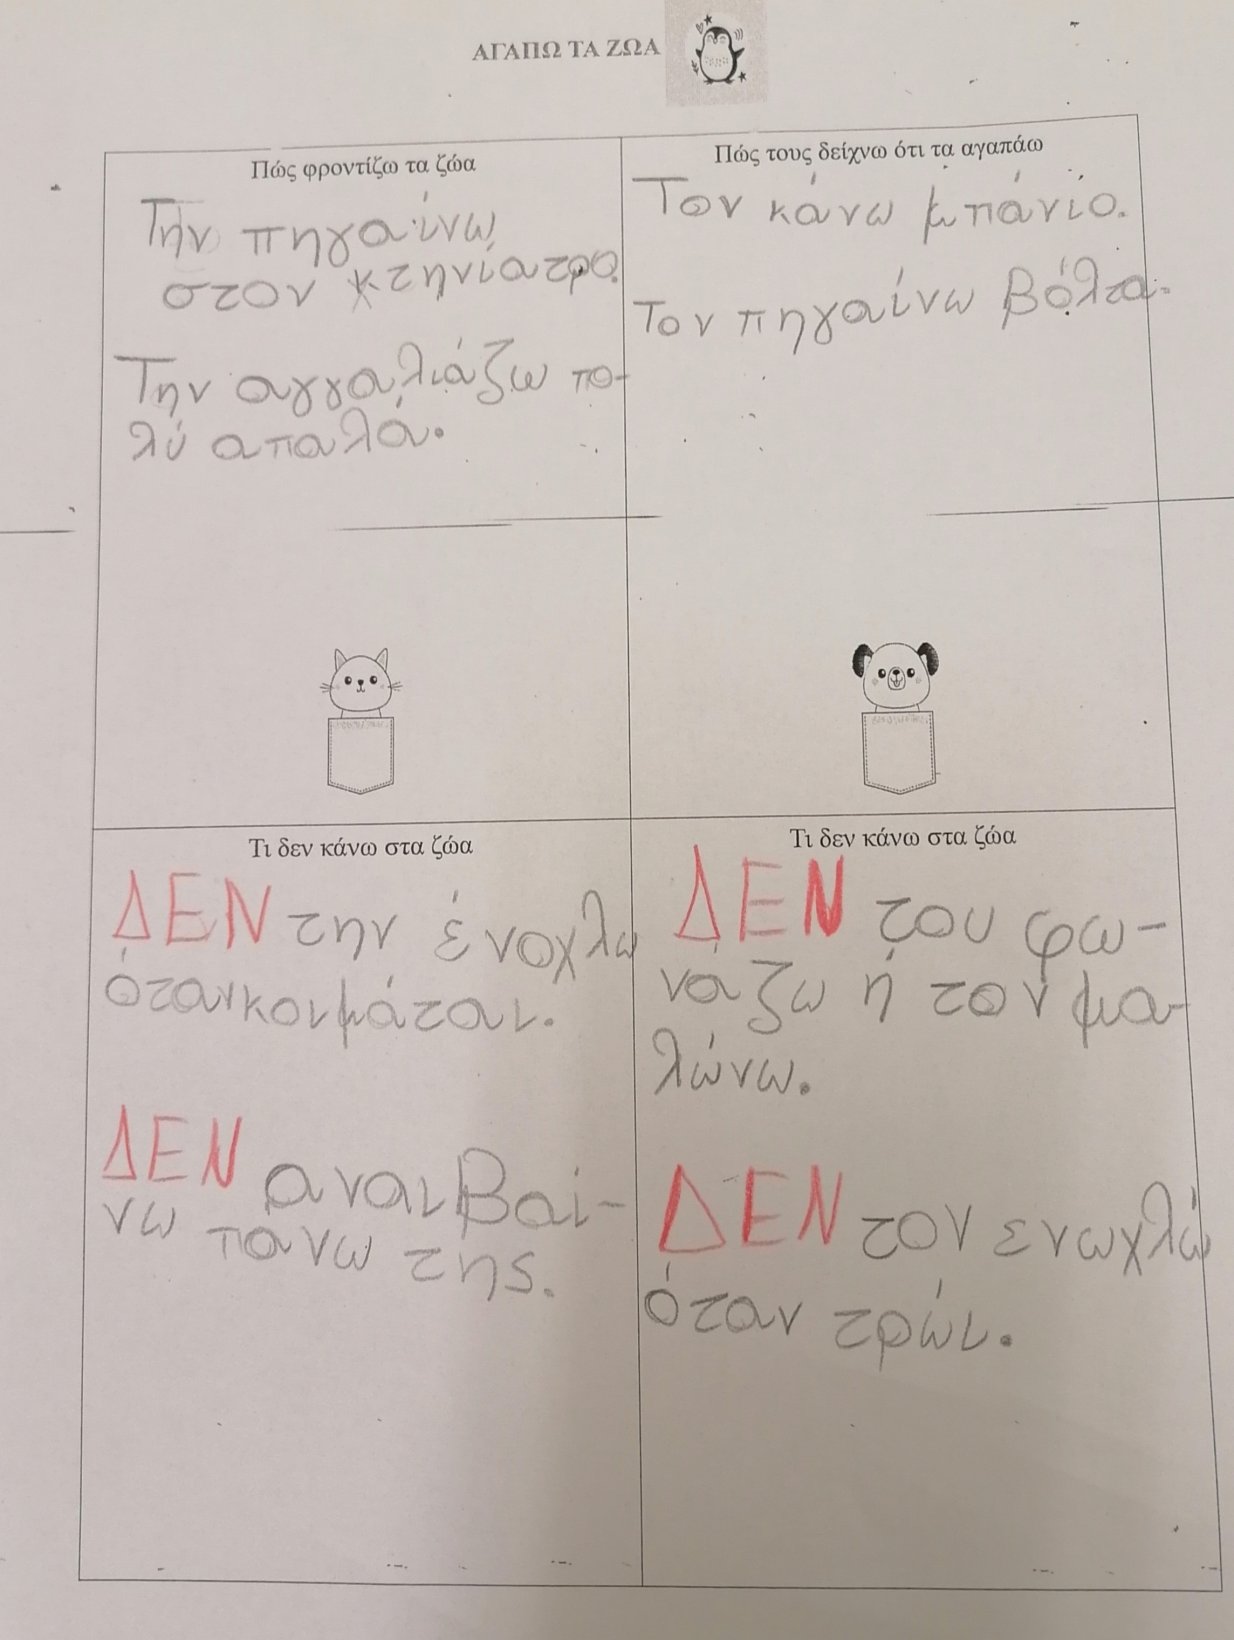 ΑΓΑΠΩ ΤΑ ΖΩΑ
Πώς φροντίζω τα ζώα
Την πηγαίνω
στον κτηνίατρο.
Την αγγαλιάζω πο-
λύ απαλά.
Πώς τους δείχνω ότι τα αγαπάω
Τον κάνω μπάνιο.
Τον πηγαίνω βόλτα.
Τι δεν κάνω στα ζώα
ΔΕΝ την ένοχλω
όταν κοιμάται.
ΔΕΝ αναιβαί-
νω πανω της.
Τι δεν κάνω στα ζώα
ΔΕΝ του φω-
νάζω ή τον μα-
λώνω.
ΔΕΝ τον ενωχλώ
όταν τρώι.